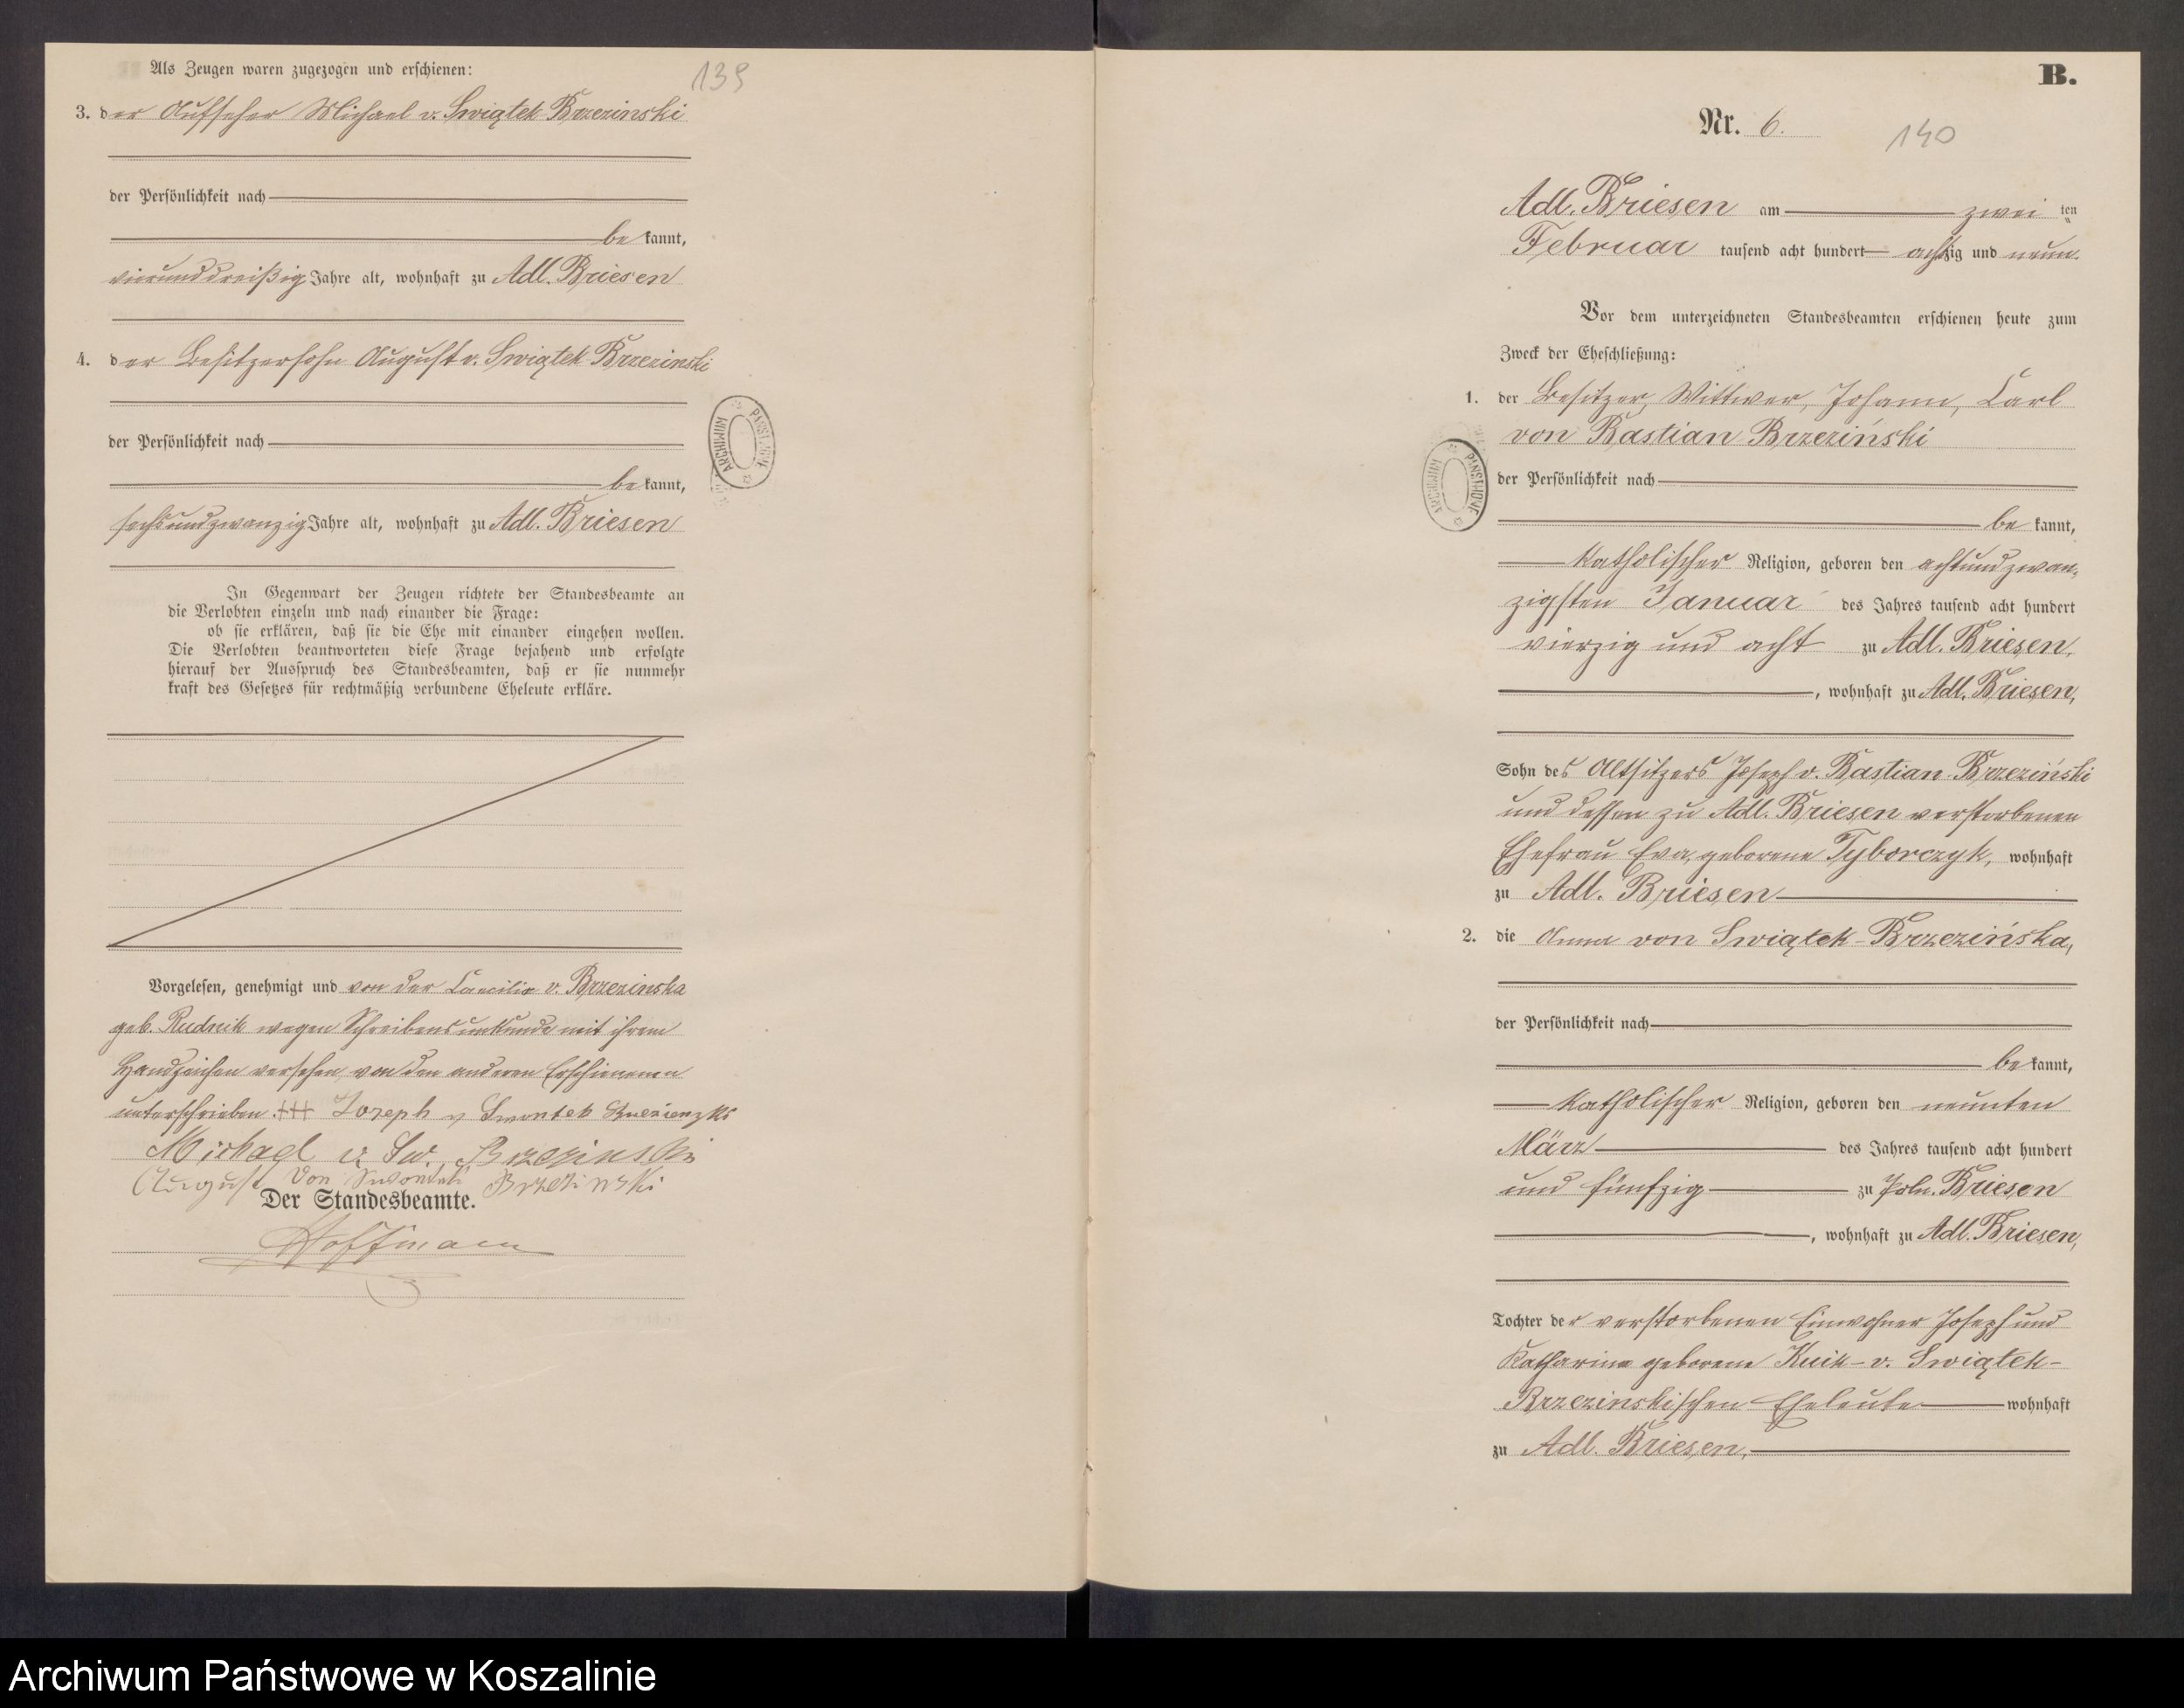 Als Zeugen waren zugezogen und erschienen:
139
3. der Aufseher Michael v. Swiątek Brzezinski
der Persönlichkeit nach
bekannt,
vierunddreißig Jahre alt, wohnhaft zu Adl. Briesen
4. der Besitzersohn August v. Swiątek Brzezinski
der Persönlichkeit nach
bekannt,
sechsundzwanzig Jahre alt, wohnhaft zu Adl. Briesen
In Gegenwart der Zeugen richtete der Standesbeamte an
die Verlobten einzeln und nach einander die Frage:
ob sie erklären, daß sie die Ehe mit einander eingehen wollen.
Die Verlobten beantworteten diese Frage bejahend und erfolgte
hierauf der Ausspruch des Standesbeamten, daß er sie nunmehr
kraft des Gesetzes für rechtmäßig verbundene Eheleute erkläre.
ARCHIWUM PAŃSTWOWE
Vorgelesen, genehmigt und von der Caecilie v. Brzezinska
geb. Rudnik wegen Schreibensunkunde mit ihrem
Handzeichen versehen, von den anderen Erschienenen
unterschrieben. +++ Joseph v Swontek
Michael v. Sw. Brzezinski
August Von Swontek Brzezinski
Der Standesbeamte.
Hoffmann
B.
Nr. 6.
140
Adl. Briesen am zweiten
Februar tausend acht hundert achtzig und neun.
Vor dem unterzeichneten Standesbeamten erschienen heute zum
Zweck der Eheschließung:
1. der Besitzer, Wittwer, Johann, Carl
von Bastian Brzeziński
ARCHIWUM PAŃSTWOWE
der Persönlichkeit nach
bekannt,
katholischer Religion, geboren den achtundzwan-
zigsten Januar des Jahres tausend acht hundert
vierzig und acht zu Adl. Briesen,
, wohnhaft zu Adl. Briesen,
Sohn des Altsitzers Joseph v. Bastian-Brzeziński
und dessen zu Adl. Briesen verstorbenen
Ehefrau Eva, geborene Tyborczyk, wohnhaft
zu Adl. Briesen
2. die Anna von Swiątek-Brzezińska,
der Persönlichkeit nach
bekannt,
katholischer Religion, geboren den neunten
März des Jahres tausend acht hundert
und fünfzig zu Poln. Briesen
, wohnhaft zu Adl. Briesen,
Tochter der verstorbenen Einwohner Joseph und
Katharina geborene Kuik- v. Swiątek-
Brzezinskischen Eheleute wohnhaft
zu Adl. Briesen,
Archiwum Państwowe w Koszalinie